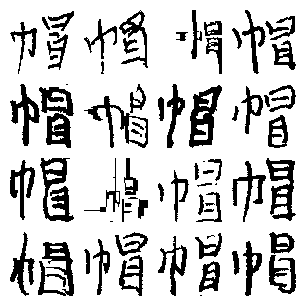 帽帽帽帽
帽帽帽帽
帽帽帽帽
帽帽帽帽